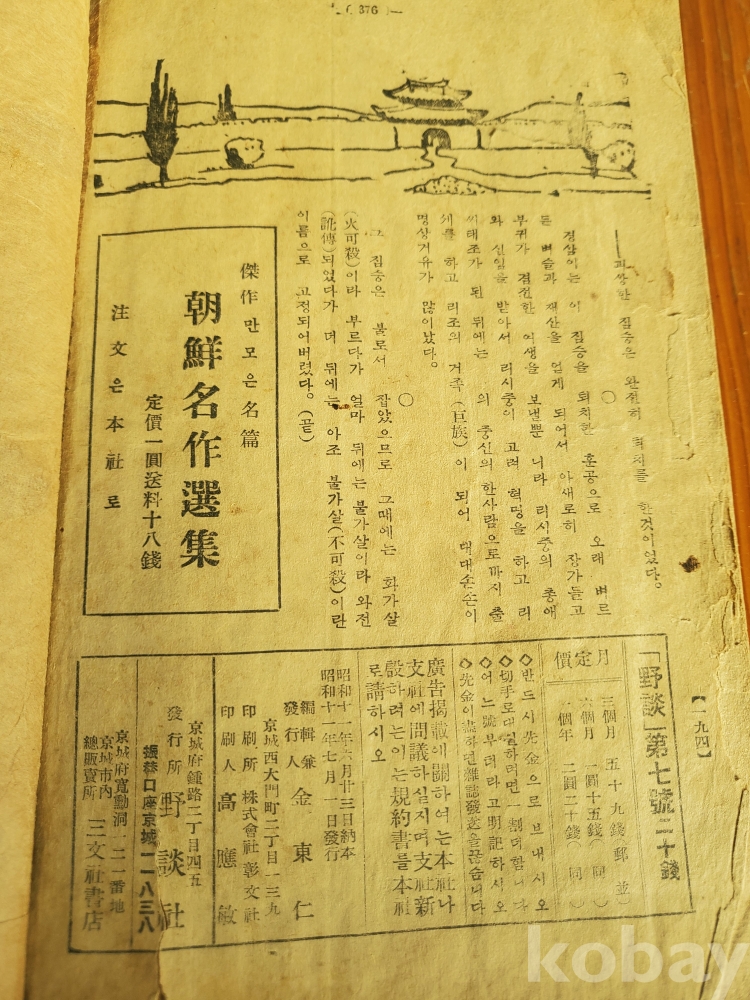 ( 376 )
한것이었다。
○
경삼이는 이 짐승을 퇴치한 훈공으로 오래 벼르
든 벼슬과 재산을 얻게 되어서 아새로히 장가들고
부귀가 겸전한 여생을 보낼뿐 니라 리시중의 총애
와 신임을 받아서 리시중이 고려 혁명을 하고 리
씨태조가 된 뒤에는 의 중신의 한사람으로까지 출
세를 하고 리조의 거족(巨族)이 되어 대대손손이
명상거유가 많이났다。
○
그 짐승은 불로서 잡았으므로 그때에는 화가살
(火可殺)이라 부르다가 얼마 뒤에는 불가살이라 와전
(訛傳)되었다가 며 뒤에는 아조 불가살(不可殺)이란
이름으로 고정되어버렸다。(끝)
傑作만모은名篇
朝鮮名作選集
定價一圓送料十八錢
注文은本社로
【一九四】
「野談」第七號三十錢
月定價
三個月 五十九錢(郵並)
六個月 一圓十五錢(同)
一個年 二圓二十錢(同)
◇반드시先金으로보내시오
◇切手로대신하려면一割더합니다
◇어느號부터라고明記하시오
◇先金이盡하면雜誌發送을끊습니다
廣告揭載에關하여는本社나
支社에問議하실지며支社新
設하려는이는規約書를本社
로請하시오
昭和十一年六月廿三日納本
昭和十一年七月一日發行
編輯兼
發行人 金東仁
京城西大門町二丁目一三九
印刷所 株式會社彰文社
印刷人 高應敏
京城府鍾路二丁目四五
發行所 野談社
振替口座京城一一八三八
京城府寬勳洞一二一番地
京城市內
總販賣所 三文社書店
kobay